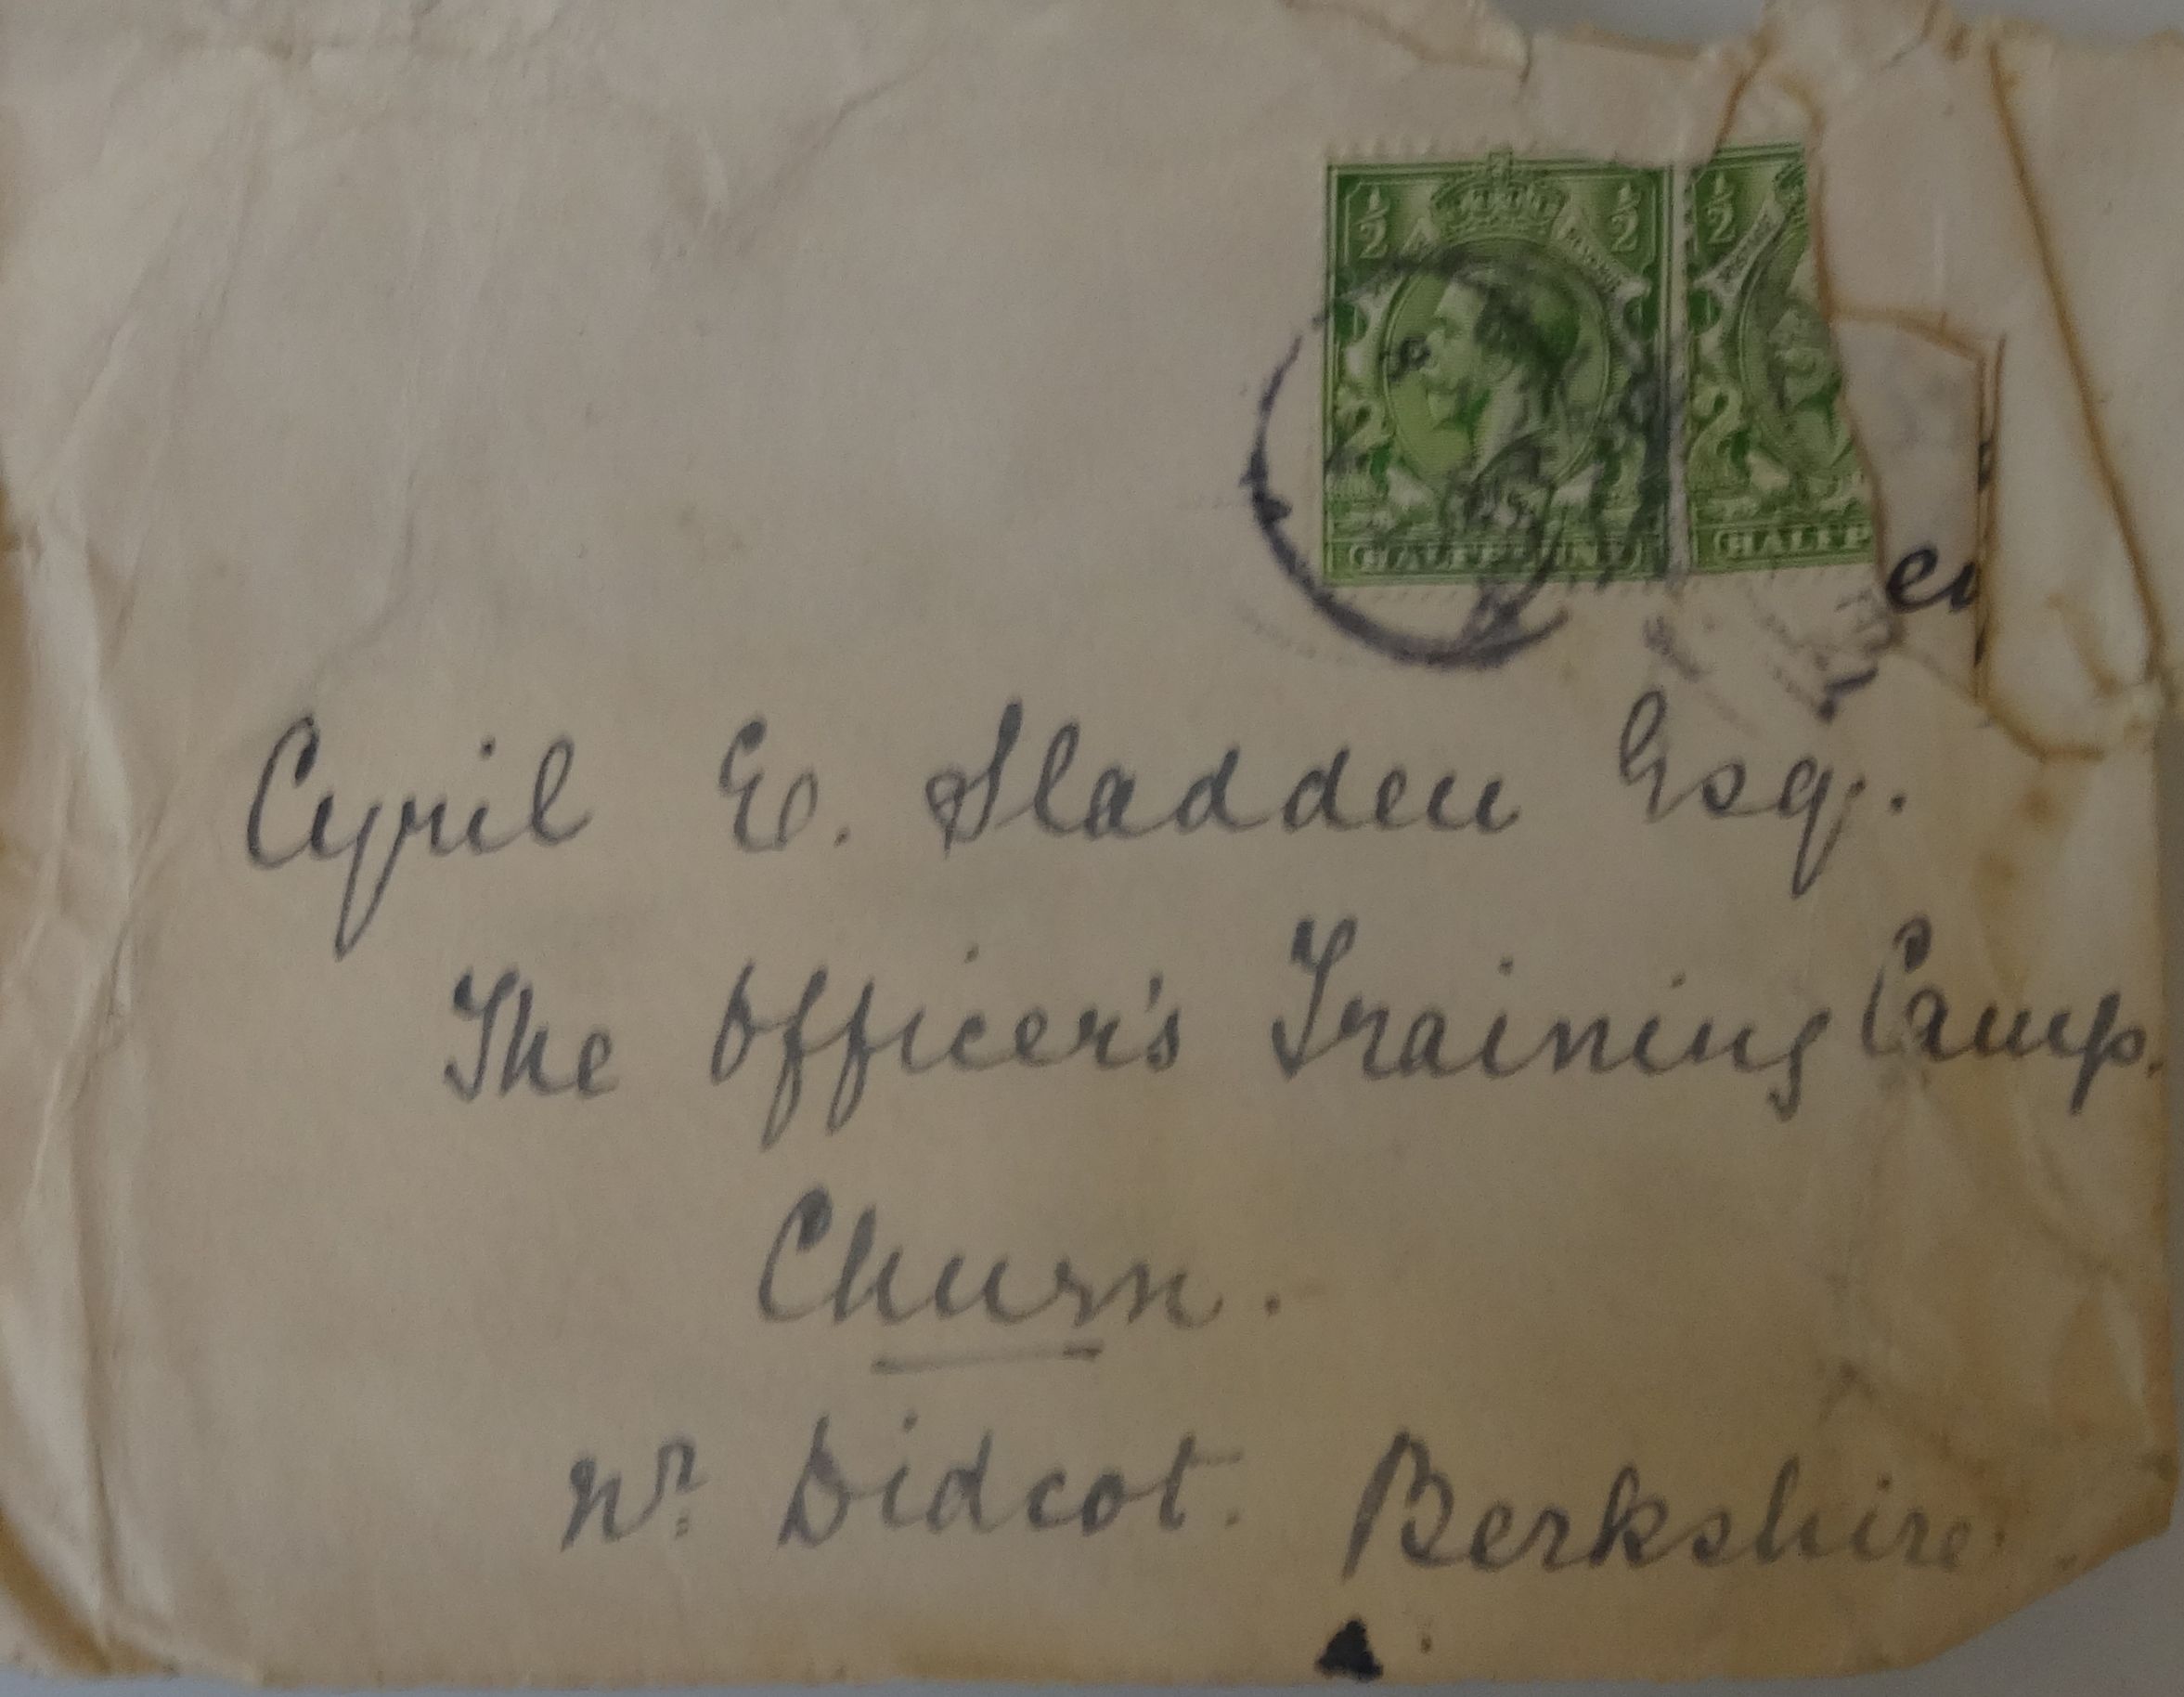 ½ ½ ½
HALFPENNY HALFP
Cyril E. Sladden Esq.
The Officer's Training Camp.
Churn.
Nr. Didcot. Berkshire.